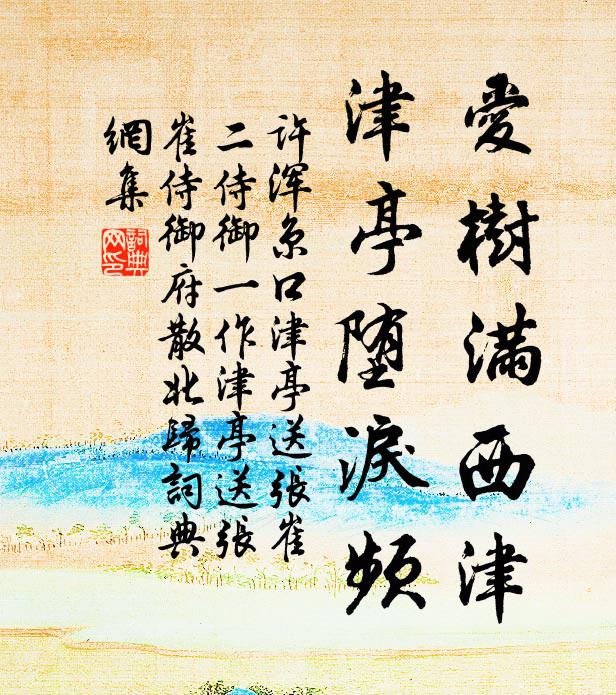 愛樹滿西津
津亭堕淚頻
許渾京口津亭送張崔
二侍御一作津亭送張
崔侍御府散北歸詞典
網集
詞典
网印